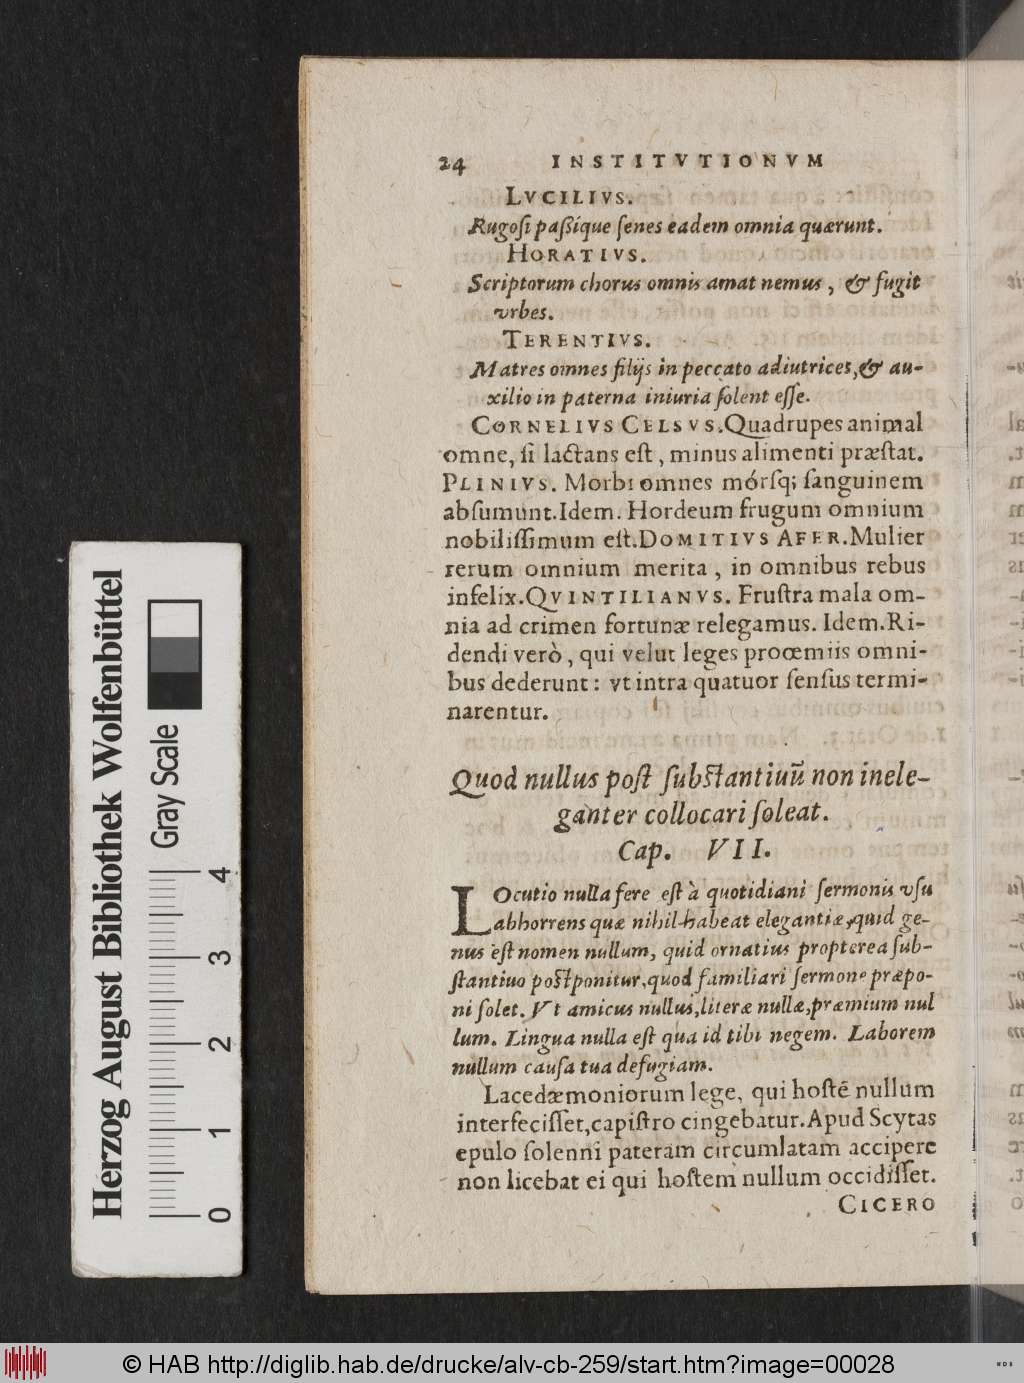 24 INSTITVTIONVM
LVCILIVS.
Rugoſi paſsique ſenes eadem omnia quærunt.
HORATIVS.
Scriptorum chorus omnis amat nemus, & fugit
vrbes.
TERENTIVS.
Matres omnes filijs in peccato adiutrices, & au-
xilio in paterna iniuria ſolent eſſe.
CORNELIVS CELSVS. Quadrupes animal
omne, ſi lactans eſt, minus alimenti præſtat.
PLINIVS. Morbi omnes mórſq; ſanguinem
abſumunt. Idem. Hordeum frugum omnium
nobiliſſimum eſt. DOMITIVS AFER. Mulier
rerum omnium merita, in omnibus rebus
infelix. QVINTILIANVS. Fruſtra mala om-
nia ad crimen fortunæ relegamus. Idem. Ri-
dendi verò, qui velut leges prooemiis omni-
bus dederunt: vt intra quatuor ſenſus termi-
narentur.
Quod nullus poſt ſubſtantiuū non inele-
ganter collocari ſoleat.
Cap. VII.
LOcutio nulla fere eſt à quotidiani ſermonis vſu
abhorrens quæ nihil habeat elegantiæ, quid ge-
nus eſt nomen nullum, quid ornatius propterea ſub-
ſtantiuo poſtponitur, quod familiari ſermone præpo-
ni ſolet. Vt amicus nullus, literæ nullæ, præmium nul
lum. Lingua nulla eſt qua id tibi negem. Laborem
nullum cauſa tua defugiam.
Lacedæmoniorum lege, qui hoſtē nullum
interfeciſſet, capiſtro cingebatur. Apud Scytas
epulo ſolenni pateram circumlatam accipere
non licebat ei qui hoſtem nullum occidiſſet.
CICERO
Herzog August Bibliothek Wolfenbüttel
Gray Scale
0 1 2 3 4
© HAB http://diglib.hab.de/drucke/alv-cb-259/start.htm?image=00028